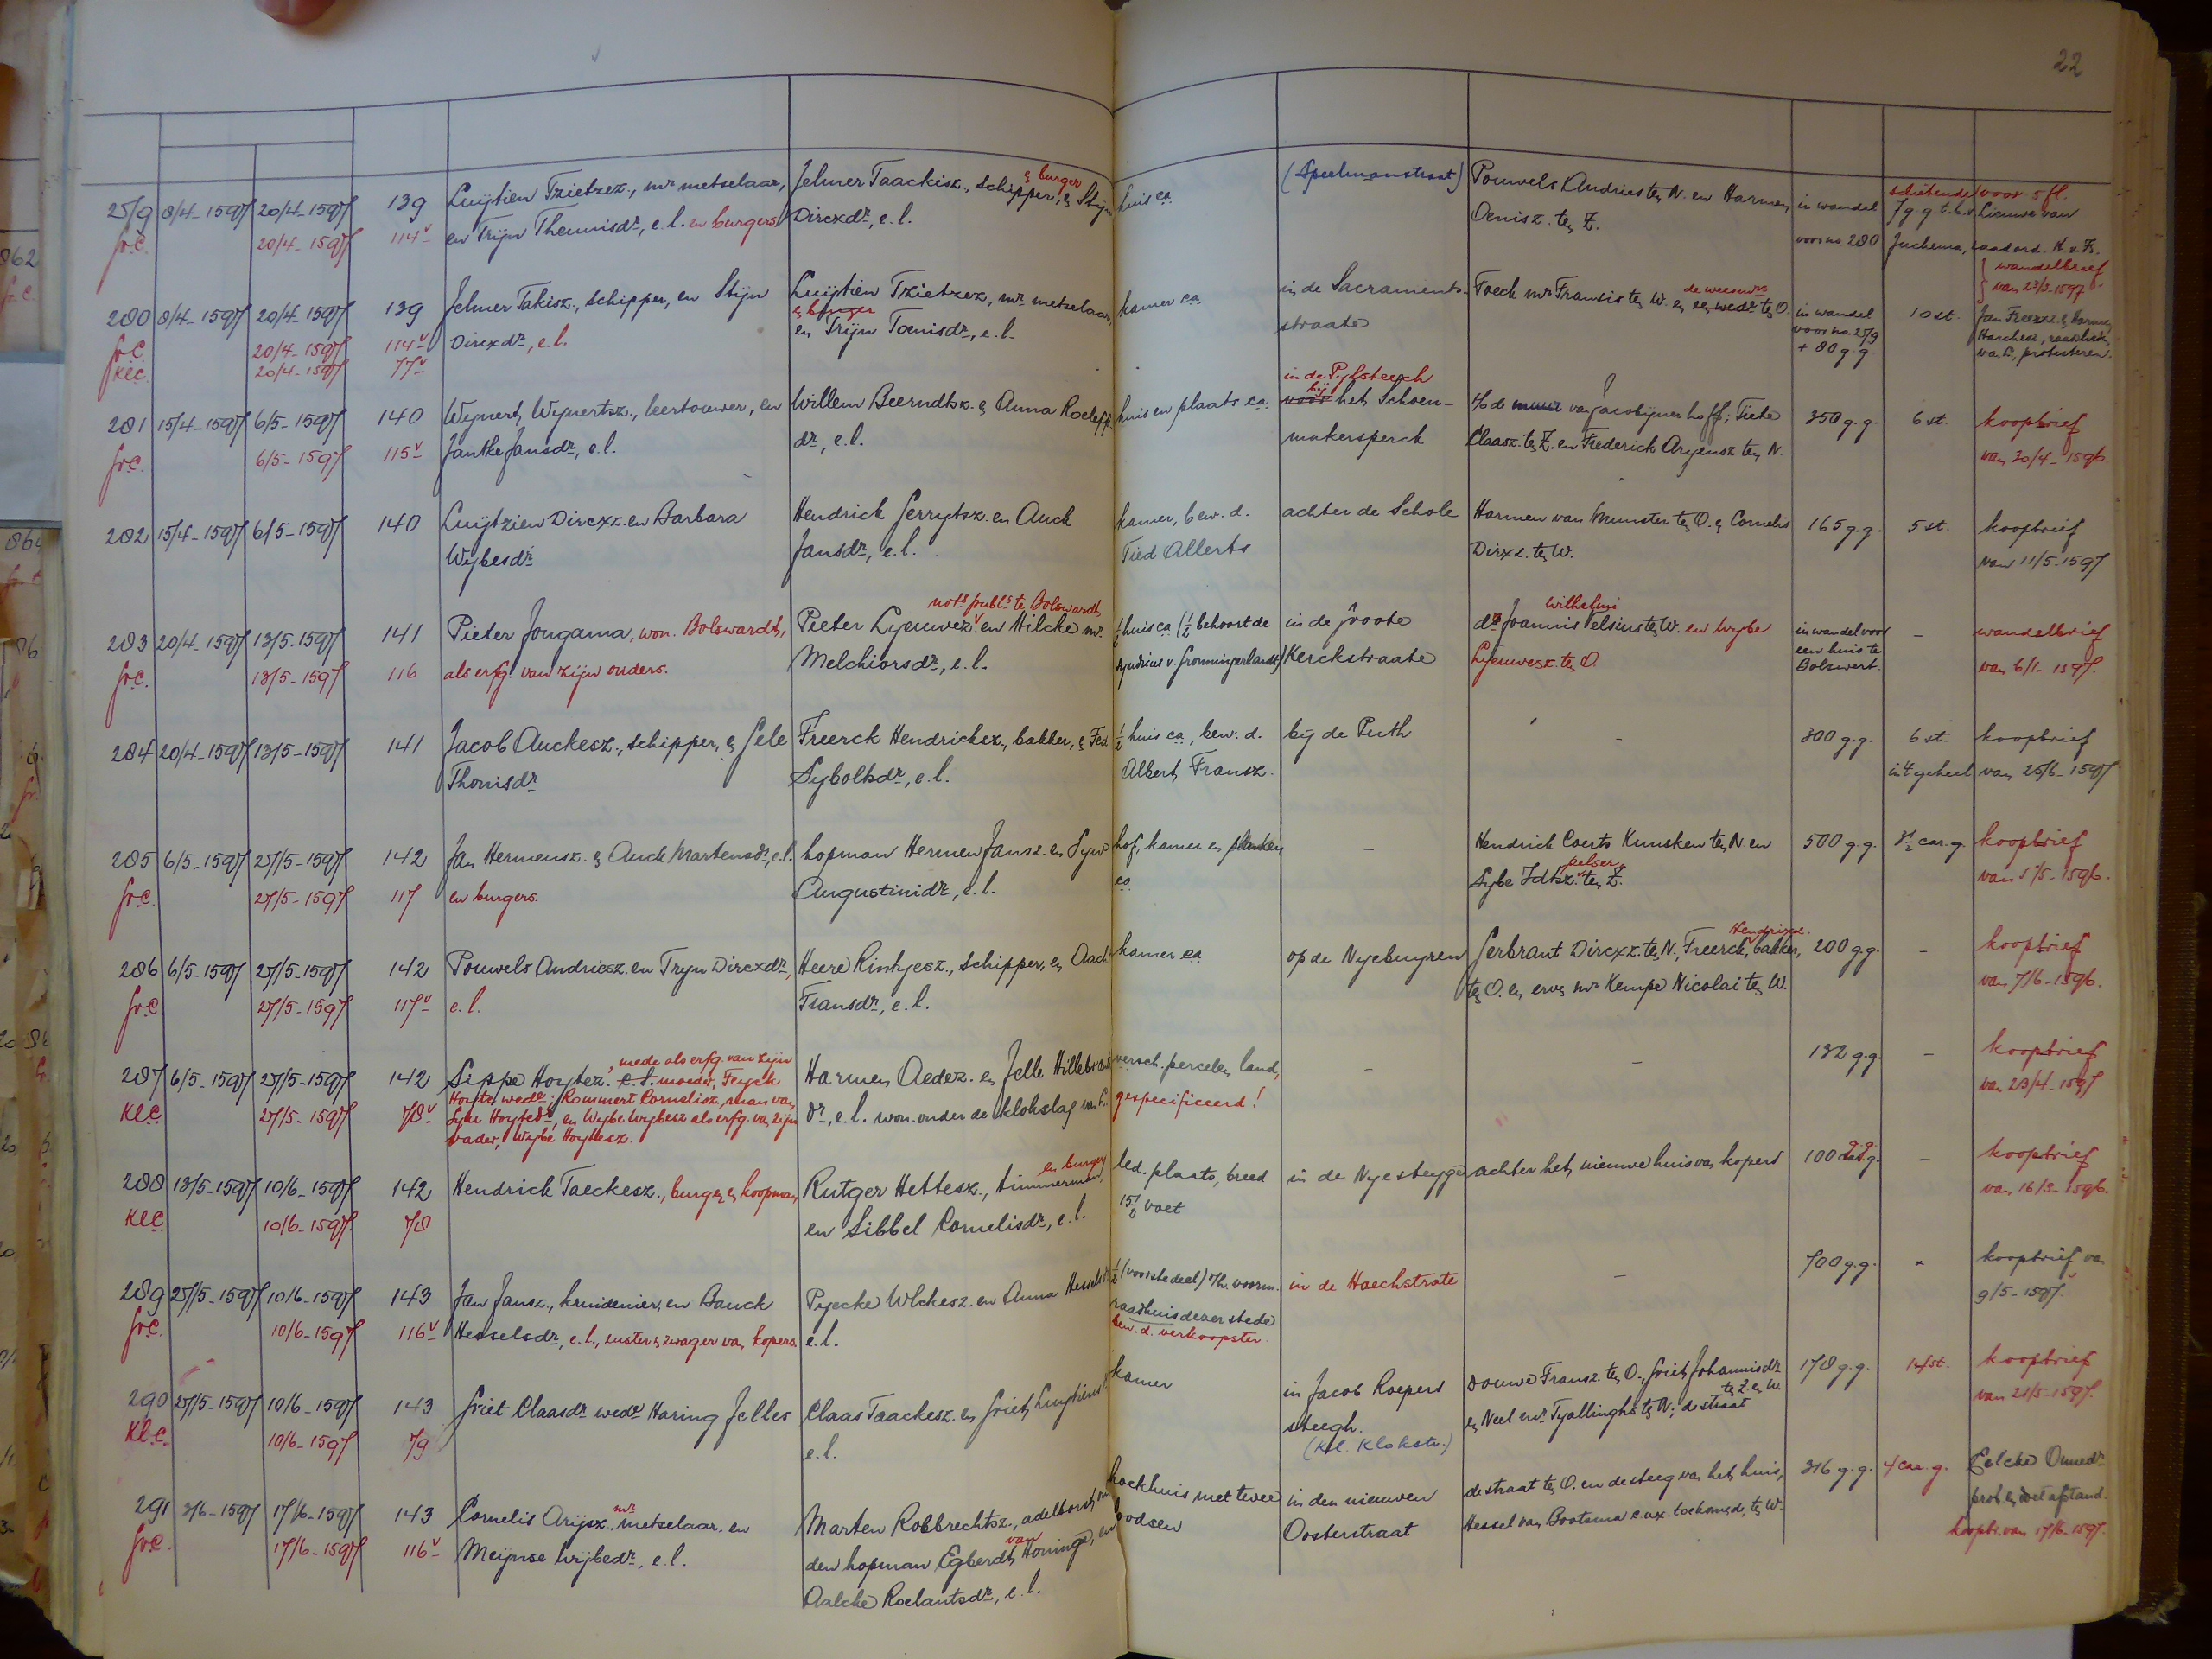 22
279 8/4-1597 20/4-1597 139 Luijtien Tzietzez., mr metselaar, Jelmer Taackisz., schipper, & Stijn huis ca (Speelmanstraat) Pouwels Andries ten N. en Harmen in wandel 7 g.g. Lieuwe van
& burger schietende voor 5 fl.
gr.C. 20/4-1597 114v en Trijn Theunisdr, e.l. en burgers Dircxdr, e.l. Denisz. ten Z. voor no. 280 Juchema, raadsord. H. v. Fr.
wandelbrief
van 23/3-1597
280 8/4-1597 20/4-1597 139 Jelmer Takisz., schipper, en Stijn Luijtien Tzietzez., mr metselaar, kamer ca in de Sacraments- Foeck mr Francis ten W. en wedr ten O. in wandel 10 st. Jan Freerxz. & Harmen
& burger de weesen
gr.C. 20/4-1597 114v Dircxdr, e.l. en Trijn Toenisdr, e.l. straate voor no. 279 Harchesz, raadslieden
Kl.C. 20/4-1597 77v + 80 g.g. van L., protesteren.
in de Pijlsteech
bij
281 15/4-1597 6/5-1597 140 Wynert Wynertsz., leertouwer, en Willem Beerndtsz. & Anna Roeleff huis en plaats ca. voor het Schoen- o/d muur van Jacobijner hoff; Fiete 350 g.g. 6 st. koopbrief
gr.C. 6/5-1597 115v Jantke Jansdr, e.l. dr, e.l. makersperck Claasz. ten Z. en Frederick Aryensz. ten N. van 30/4-1596
282 15/4-1597 6/5-1597 140 Luijtzien Dircxz. en Barbara Hendrick Gerrytsz. en Auck kamer, bew. d. achter de Schole Harmen van Munster ten O. & Cornelis 165 g.g. 5 st. koopbrief
Wybesdr Jansdr, e.l. Tied Allerts Dirxz. ten W. van 11/5-1597
nots publs te Bolswardt Wilhelmi
283 20/4-1597 13/5-1597 141 Pieter Jongama, won. Bolswardt, Pieter Lyeuwez. en Hilcke mr ½ huis ca (½ behoort de in de groote dr Joannis Velsius ten W. en Wybe in wandel voor - wandelbrief
gr.C. 13/5-1597 116 als erfg. van zijn ouders. Melchiorsdr, e.l. syndicus v. Gronningerlandt) Kerckstraate Lyeuwesz. ten O. een huis te Bolswert. van 6/1-1597.
284 20/4-1597 13/5-1597 141 Jacob Auckesz., schipper, & Jele Freerck Hendricksz., bakker, & Fed ½ huis ca, bew. d. bij de Puth - 300 g.g. 6 st. koopbrief
Thonisdr Syboltsdr, e.l. Albert Fransz. in 't geheel van 25/6-1597
285 6/5-1597 27/5-1597 142 Jan Hermensz. & Auck Martensdr, e.l. hopman Hermen Jansz. en Syw hof, kamer en planken - Hendrick Coerts Kunsken ten N. en 500 g.g. car. g. koopbrief
gr.C. 27/5-1597 117 en burgers. Augustinidr, e.l. ca Sybe Idtsz. pelser ten Z. van 5/5-1596.
Hendrixz.
286 6/5-1597 27/5-1597 142 Pouwels Andriesz. en Tryn Dircxdr, Heere Rinthjesz., schipper, en Aach kamer ca op de Nyebuyren Gerbrant Dircxz. ten N., Freerck, bakker, 200 g.g. - koopbrief
gr.C. 27/5-1597 117v e.l. Fransdr, e.l. ten O. en erven mr Kempe Nicolai ten W. van 7/6-1596.
, mede als erfg. van zijn
287 6/5-1597 27/5-1597 142 Sippe Hoytez. e.l. moeder, Feyck Harmen Aedez. en Jelle Hillebrants versch. percelen land, - - 132 g.g. - koopbrief
Kl.C. 27/5-1597 78v Hoyte wede; Kommert Cornelisz, man van dr, e.l. won. onder de klokslag van L. gespecificeerd! van 23/4-1597
Syke Hoytedr, en Wybe Wybesz als erfg. van zijn
vader, Wybe Hoytesz.
288 13/5-1597 10/6-1597 142 Hendrick Taeckesz., burger & koopman Rutger Hettesz., timmerman, en burger led. plaats, breed in de Nyesteyge achter het nieuwe huis van kopers 100 g.g. - koopbrief
Kl.C. 10/6-1597 78 en Sibbel Cornelisdr, e.l. 15½ voet van 16/3-1596.
289 27/5-1597 10/6-1597 143 Jan Jansz., kruidenier, en Bauck Pyecke Wlckesz. en Anna Hesselsdr ½ (voorste deel) v/h. voorm. in de Haechstrate - 700 g.g. - koopbrief van
gr.C. 10/6-1597 116v Hesselsdr, e.l., zuster & zwager van kopers e.l. raadhuis dezer stede 9/5-1597.
bew. d. verkoopster.
290 27/5-1597 10/6-1597 143 Griet Claasdr wedr Haring Jelles Claas Taackesz. en Griet Luytiens kamer in Jacob Roepers Douwe Fransz. ten O., Griet Johannisdr ten Z. en W. 178 g.g. 14 st. koopbrief
Kl.C. 10/6-1597 79 e.l. steegh. & Neel mr Tyallinghs ten N.; de straat van 21/5-1597.
(Kl. Klokstr.)
291 3/6-1597 17/6-1597 143 Cornelis Arijsz., mr metselaar en Marten Robbrechtsz., adelborst on hoekhuis met twee in den nieuwen de straat ten O. en de steeg van het huis, 316 g.g. 4 car. g. Eelcke Onnedr
gr.C. 17/6-1597 116v Meijnse Wijbedr, e.l. den hopman Egberdt van Honinga, en loodsen Oosterstraat Hessel van Bootsma c.ux. toekomende, ten W. prot. & doet afstand.
Aalcke Roelantsdr, e.l. koopbr. van 17/6-1597.